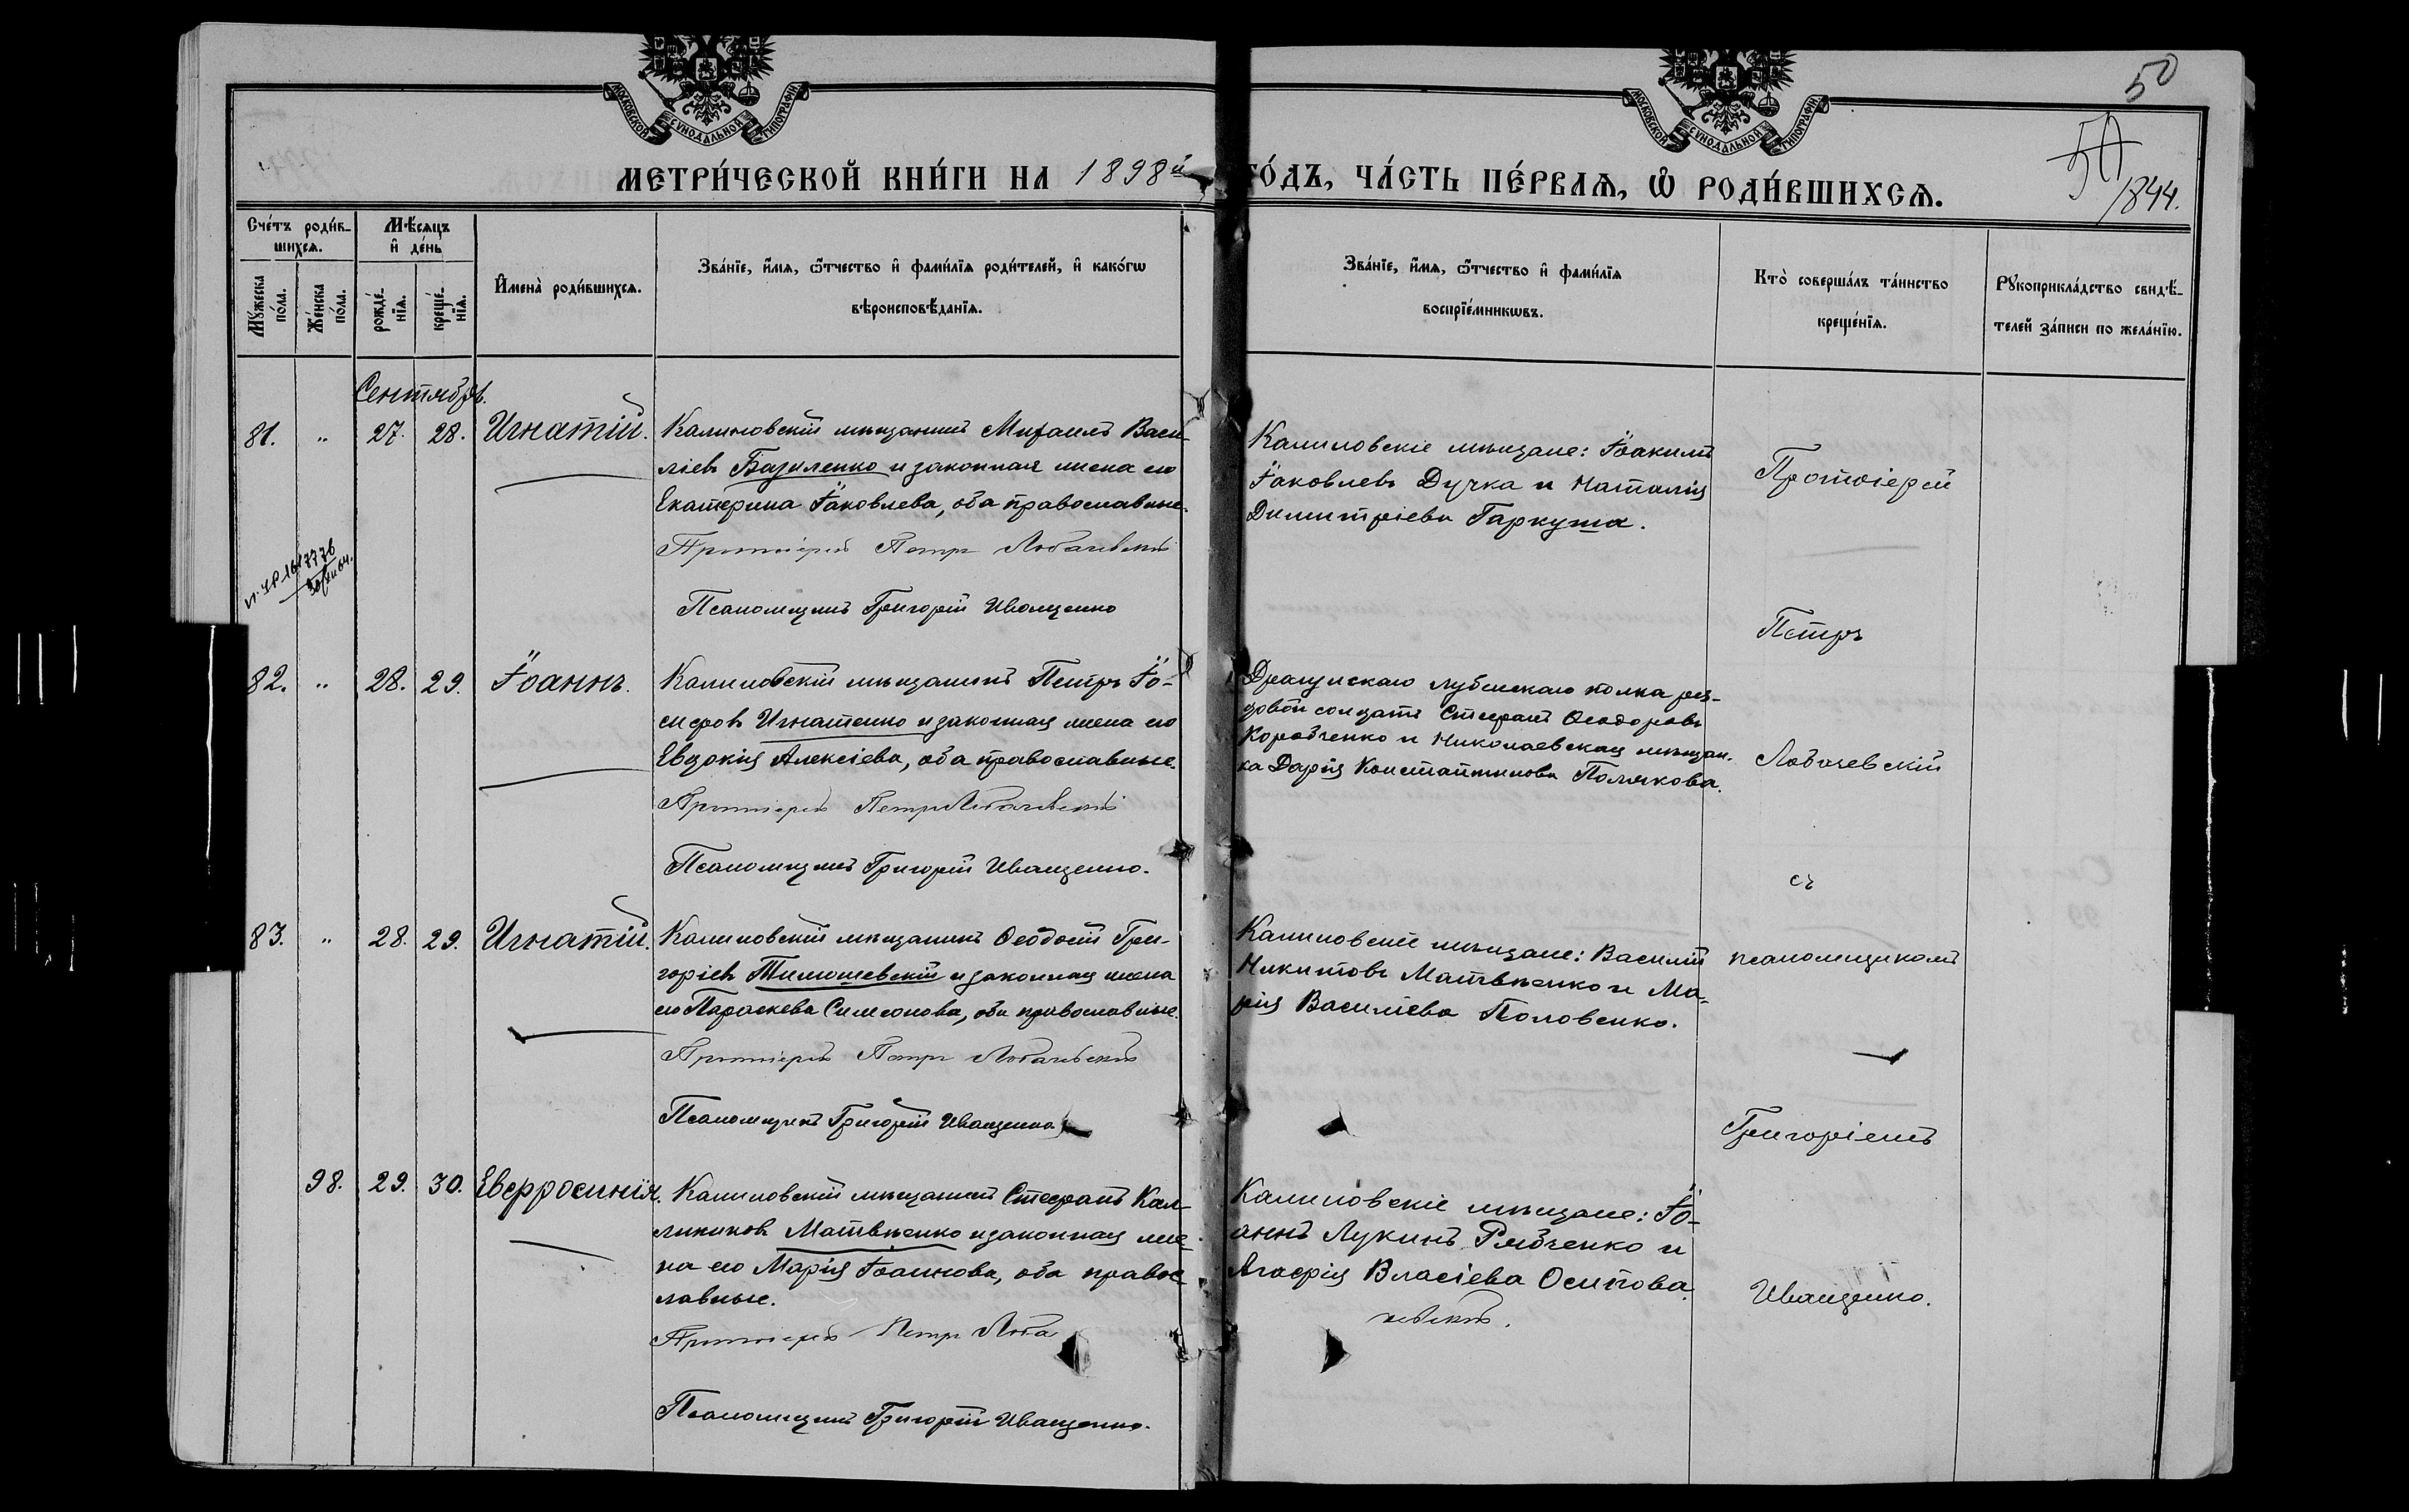 50
50
1844.
МОСКОВСКОЙ СУНОДАЛЬНОЙ ТИПОГРАФІИ
МОСКОВСКОЙ СУНОДАЛЬНОЙ ТИПОГРАФІИ
МЕТРИ́ЧЕСКОЙ КНИ́ГИ НА 1898й ГО́ДЪ, ЧА́СТЬ ПЕ́РВАѦ, Ѽ РОДИ́ВШИХСѦ.
Сче́тъ роди́в-
шихсѧ.
Мѣ́сяцъ
и҆ де́нь
Мꙋ́жеска
по́ла.
Же́нска
по́ла.
рожде́-
нїѧ.
креще́-
нїѧ.
И҆мена̀ роди́вшихсѧ.
Зва́нїе, и҆́мѧ, ѻ҆́тчество и҆ фами́лїѧ роди́телей, и҆ како́гѡ
вѣроисповѣ́данїѧ.
Зва́нїе, и҆́мѧ, ѻ҆́тчество и҆ фами́лїѧ
воспрїе́мникѡвъ.
Кто̀ соверша́лъ та́инство
креще́нїѧ.
Рꙋкоприкла́дство свидѣ́-
телей за́писи по жела́нїю.
Сентябрь.
81. " 27. 28. Игнатій. Калиновскій мѣщанинъ Михаилъ Васи-
ліевъ Базиленко и законная жена его
Екатерина Іаковлева, оба православные.
Протоіерей Петръ Лобачевскій
Псаломщикъ Григорій Иващенко
Калиновскіе мѣщане: Іоакимъ
Іаковлевъ Дучка и Наталія
Димитріева Гаркуша.
Протоіерей
Петръ
82. " 28. 29. Іоаннъ. Калиновскій мѣщанинъ Петръ Іо-
сифовъ Игнатенко и законная жена его
Евдокія Алексіева, оба православные.
Протоіерей Петръ Лобачевскій
Псаломщикъ Григорій Иващенко.
Драгунскаго Лубенскаго полка ря-
довой солдатъ Стефанъ Ѳеодоровъ
Коробченко и Николаевская мѣщан-
ка Дарія Константинова Полякова.
Лобачевскій
съ
83. " 28. 29. Игнатій. Калиновскій мѣщанинъ Ѳеодосій Гри-
горіевъ Тимошевскій и законная жена
его Параскева Симеонова, оба православные.
Протоіерей Петръ Лобачевскій
Псаломщикъ Григорій Иващенко
Калиновскіе мѣщане: Василій
Никитовъ Матвѣенко и Ма-
рія Василіева Половенко.
псаломщикомъ
Григоріемъ
98. 29. 30. Евфросинія. Калиновскій мѣщанинъ Стефанъ Кал-
линиковъ Матвѣенко и законная же-
на его Марія Іоаннова, оба правос-
лавные.
Протоіерей Петръ Лоба
чевскій.
Псаломщикъ Григорій Иващенко.
Калиновскіе мѣщане: Іо-
аннъ Лукинъ Рябченко и
Агафія Власіева Осипова.
Иващенко.